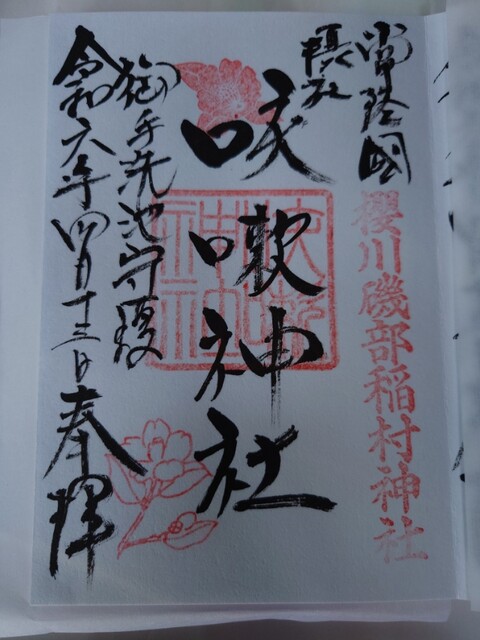 常陸國
櫻川磯部稲村神社
摂社
咳嗽神社
御手洗池守護
令和六年四月十三日奉拝